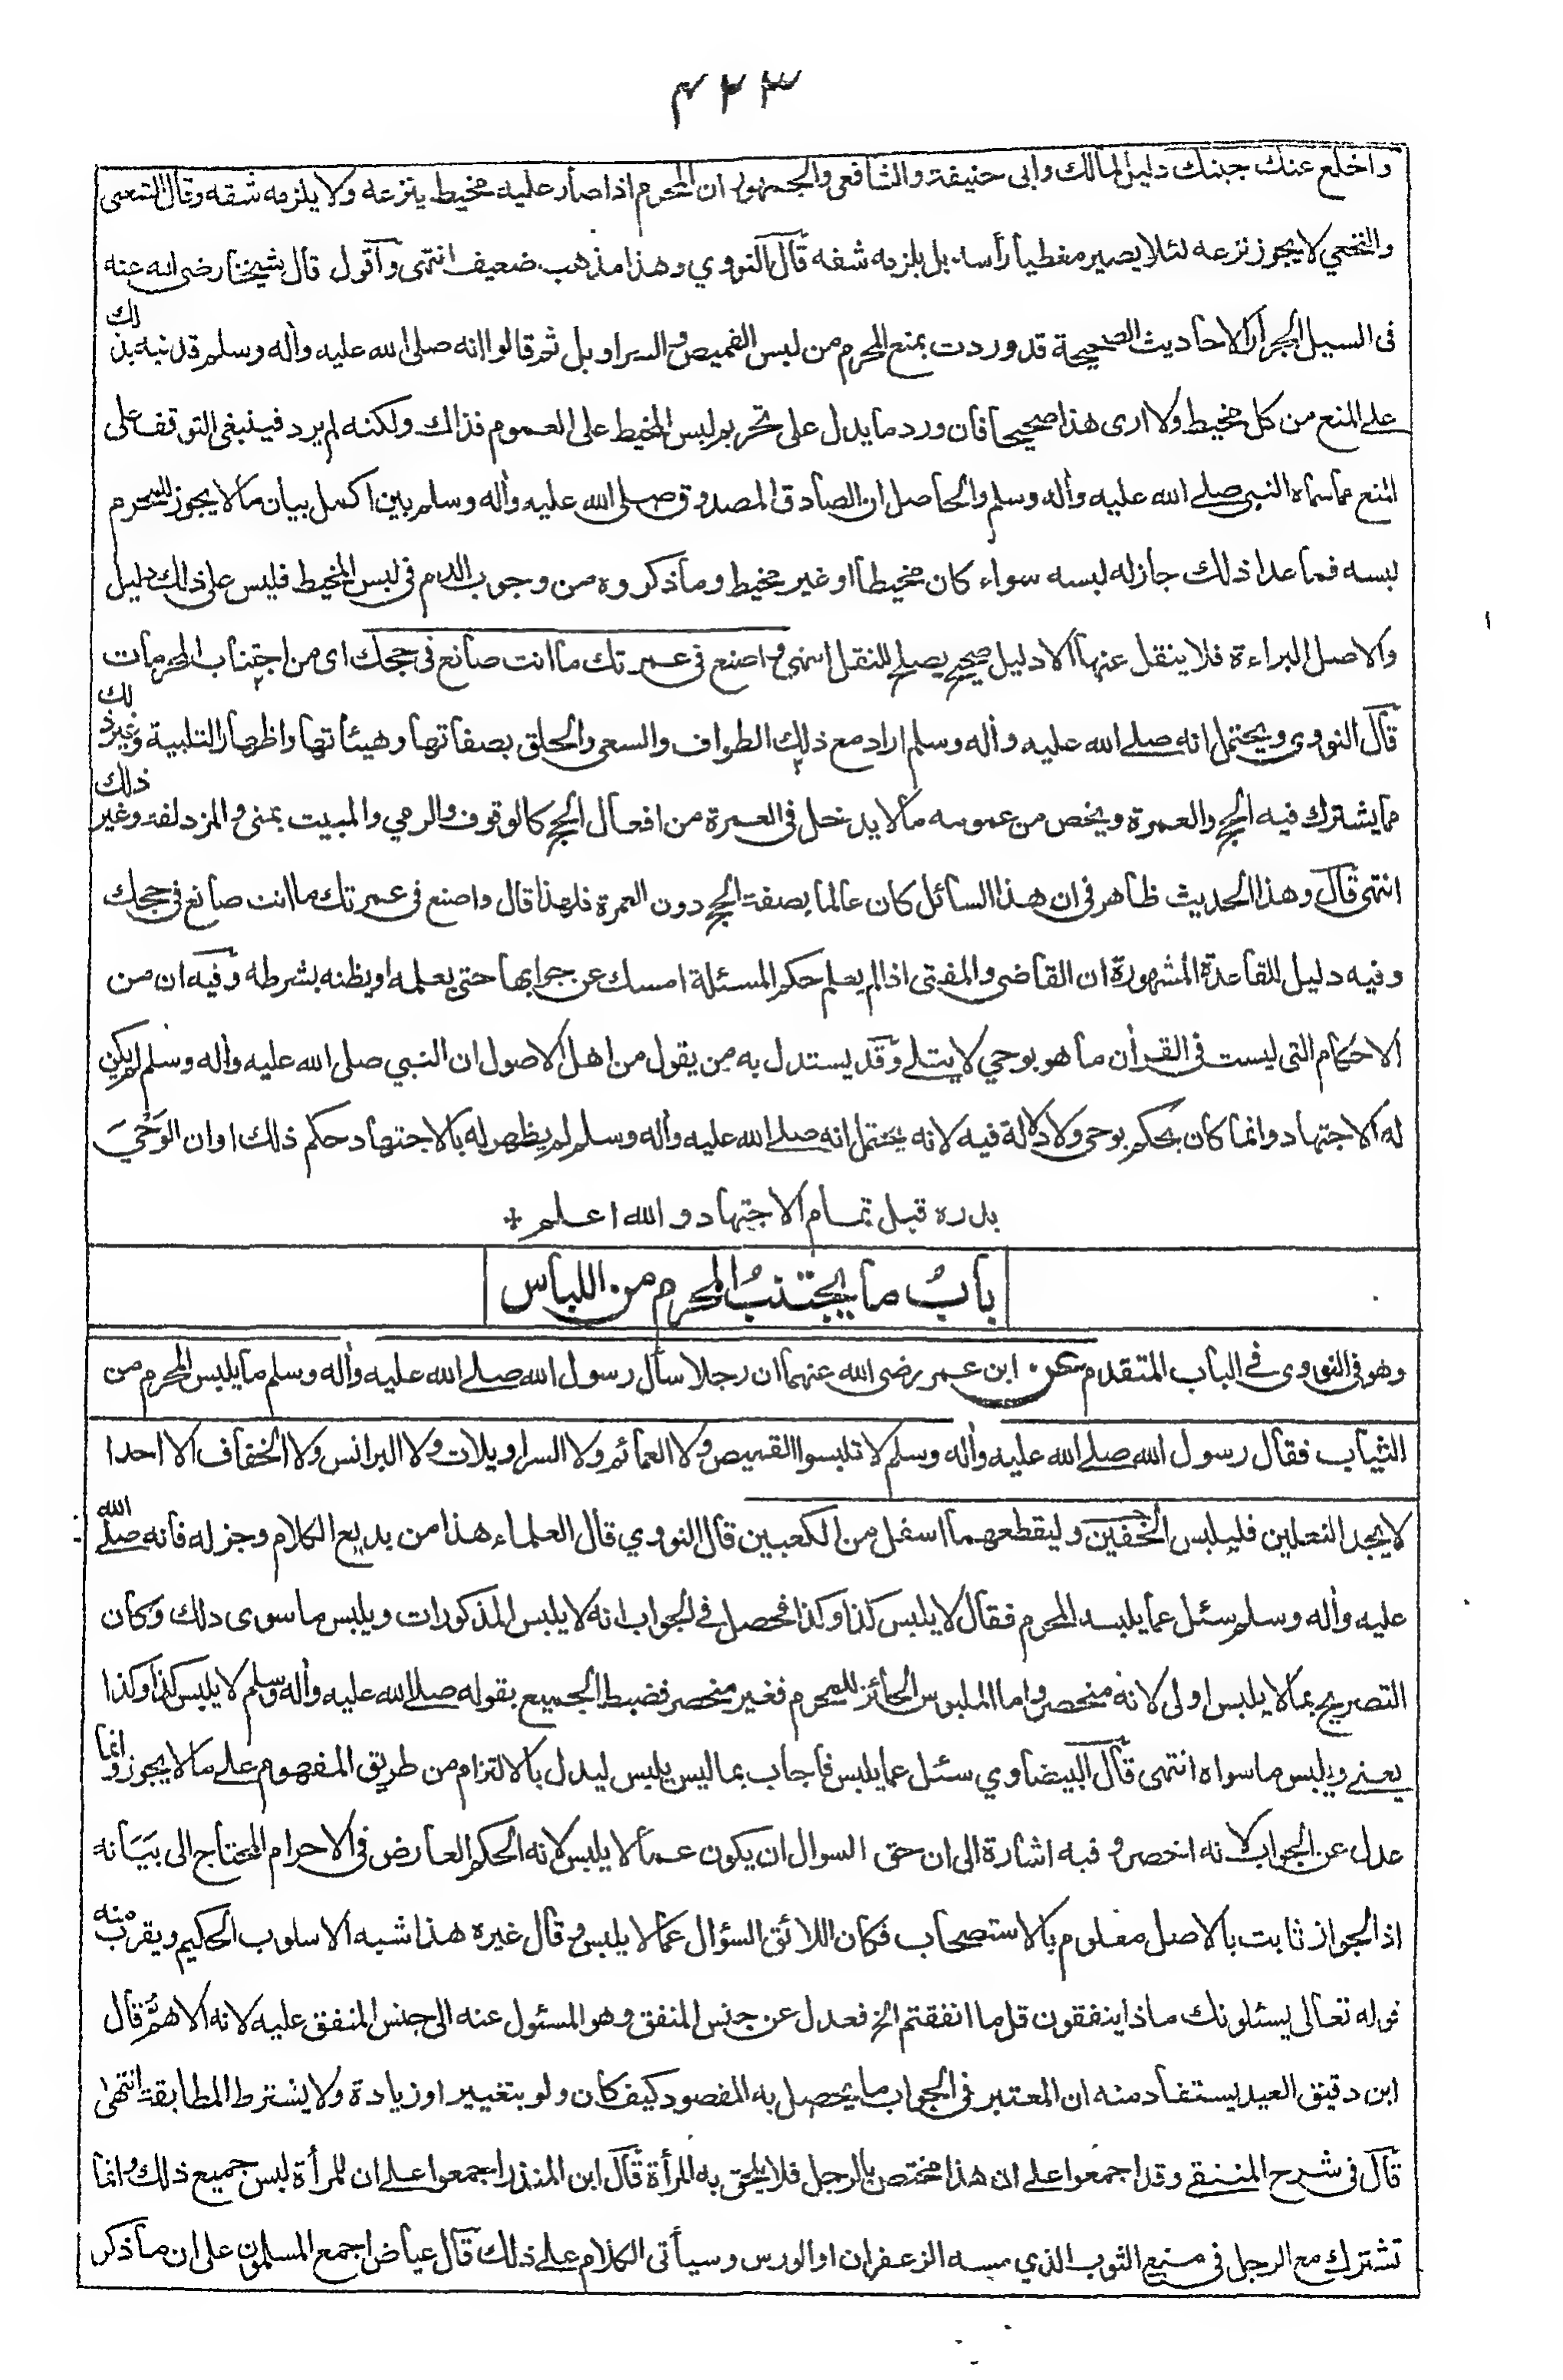 ٤٢٣
واخلع عنك جبتك دليل لمالك وابى حنيفة والشافعى والجمهور ان المحرم اذا صار عليه مخيط ينزعه ولا يلزمه شقه وقال الشعبى
والنخعي لا يجوز نزعه لئلا يصير مغطيا رأسه بل يلزمه شقه قال النووي وهذا مذهب ضعيف انتهى واقول قال شيخنا رضى الله عنه
فى السيل الجرار الاحاديث الصحيحة قد وردت بمنع المحرم من لبس القميص والسراويل ثم قالوا انه صلى الله عليه وأله وسلم قد نبه بذلك
على المنع من كل مخيط ولا ارى هذا صحيحا فان ورد ما يدل على تحريم لبس المخيط على العموم فذاك ولكنه لم يرد فينبغى التوقف على
المنع مما سماه النبي صلى الله عليه وأله وسلم والحاصل ان الصادق المصدوق صلى الله عليه وأله وسلم بين اكمل بيان ما لا يجوز للمحرم
لبسه فما عدا ذلك جاز له لبسه سواء كان مخيطا او غير مخيط وما ذكروه من وجوب الدم فى لبس المخيط فليس على ذلك دليل
والاصل البراءة فلا ينقل عنها الا دليل صحيح يصلح للنقل انتهى واصنع فى عمرتك ما انت صانع فى حجك اى من اجتناب المحرمات
قال النووى ويحتمل انه صلى الله عليه وأله وسلم اراد مع ذلك الطواف والسعى والحلق بصفاتها وهيئاتها واظهار التلبية وغير ذلك
مما يشترك فيه الحج والعمرة ويخص من عمومه ما لا يدخل فى العمرة من افعال الحج كالوقوف والرمي والمبيت بمنى والمزدلفة وغير ذلك
انتهى قال وهذا الحديث ظاهر فى ان هذا السائل كان عالما بصفة الحج دون العمرة فلهذا قال واصنع فى عمرتك ما انت صانع فى حجك
وفيه دليل للقاعدة المشهورة ان القاضى والمفتى اذا لم يعلم حكم المسئلة امسك عن جوابها حتى يعلمه او يظنه بشرطه وفيه ان من
الاحكام التى ليست فى القرأن ما هو بوحي لا يتلى وقد يستدل به من يقول من اهل الاصول ان النبي صلى الله عليه وأله وسلم لم يكن
له الاجتهاد وانما كان يحكم بوحى ولا دلالة فيه لانه يحتمل انه صلى الله عليه وأله وسلم لم يظهر له بالاجتهاد حكم ذلك او ان الوحي
بدره قبل تمام الاجتهاد والله اعلم +
باب ما يجتنب المحرم من اللباس
وهو فى النووى فى الباب المتقدم عن ابن عمر رضى الله عنهما ان رجلا سأل رسول الله صلى الله عليه وأله وسلم ما يلبس المحرم من
الثياب فقال رسول الله صلى الله عليه وأله وسلم لا تلبسوا القميص ولا العمائم ولا السراويلات ولا البرانس ولا الخفاف الا احدا
لا يجد النعلين فليلبس الخفين وليقطعهما اسفل من الكعبين قال النووي قال العلماء هذا من بديع الكلام وجزله فانه صلى الله
عليه وأله وسلم سئل عما يلبسه المحرم فقال لا يلبس كذا وكذا فحصل فى الجواب انه لا يلبس المذكورات ويلبس ما سوى ذلك وكان
التصريح بما لا يلبس اولى لانه منحصر واما الملبوس الجائز للمحرم فغير منحصر فضبط الجميع بقوله صلى الله عليه وأله وسلم لا يلبس كذا وكذا
يعنى ويلبس ما سواه انتهى قال البيضاوي سئل عما يلبس فاجاب بما ليس يلبس ليدل بالالتزام من طريق المفهوم على ما لا يجوز وانما
عدل عن الجواب لانه اخصر و فيه اشارة الى ان حق السوال ان يكون عما لا يلبس لانه الحكم العارض فى الاحرام المحتاج الى بيانه
اذ الجواز ثابت بالاصل معلوم بالاستصحاب فكان اللائق السؤال عما لا يلبس وقال غيره هذا شبه الاسلوب الحكيم ويقرب منه
قوله تعالى يسئلونك ماذا ينفقون قل ما انفقتم الخ فعدل عن جنس المنفق وهو المسئول عنه الى جنس المنفق عليه لانه الاهم قال
ابن دقيق العيد يستفاد منه ان المعتبر فى الجواب ما يحصل به المقصود كيف كان ولو بتغيير او زيادة ولا يشترط المطابقة انتهى
قال فى شرح المنتقى وقد اجمعوا على ان هذا مختص بالرجل فلا يلحق به المرأة قال ابن المنذر اجمعوا على ان للمرأة لبس جميع ذلك وانما
تشترك مع الرجل فى منع الثوب الذي مسه الزعفران او الورس وسيأتى الكلام على ذلك قال عياض اجمع المسلمون على ان ما ذكر